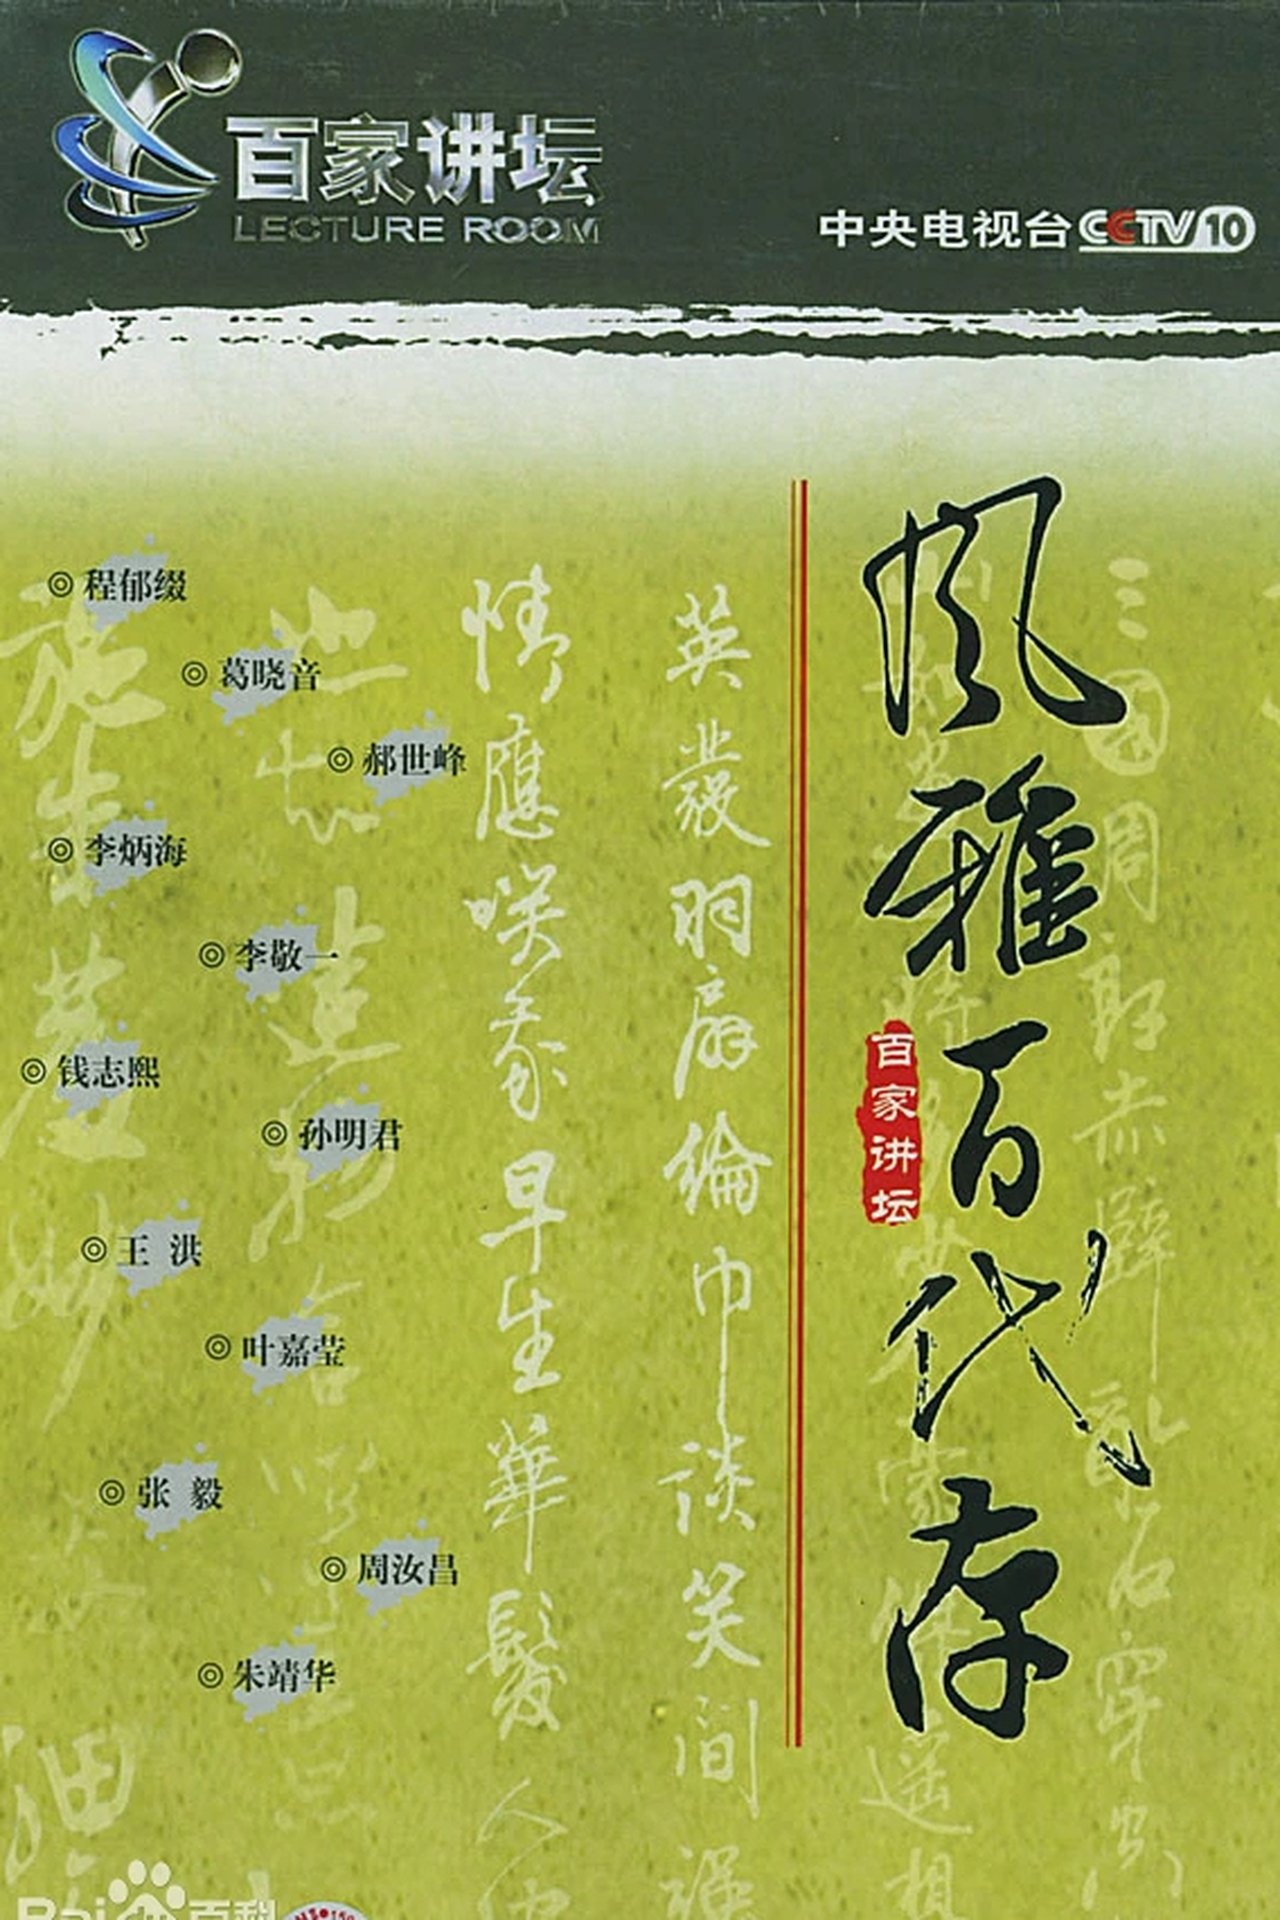 百家讲坛
LECTURE ROOM
中央电视台 CCTV 10
風雅百代存
百家讲坛
◎ 程郁缀
◎ 葛晓音
◎ 郝世峰
◎ 李炳海
◎ 李敬一
◎ 钱志熙
◎ 孙明君
◎ 王 洪
◎ 叶嘉莹
◎ 张 毅
◎ 周汝昌
◎ 朱靖华
三國周郎赤壁亂石穿
遥想
英發羽扇綸巾谈笑间
情應笑我早生華髮人
Bai百科